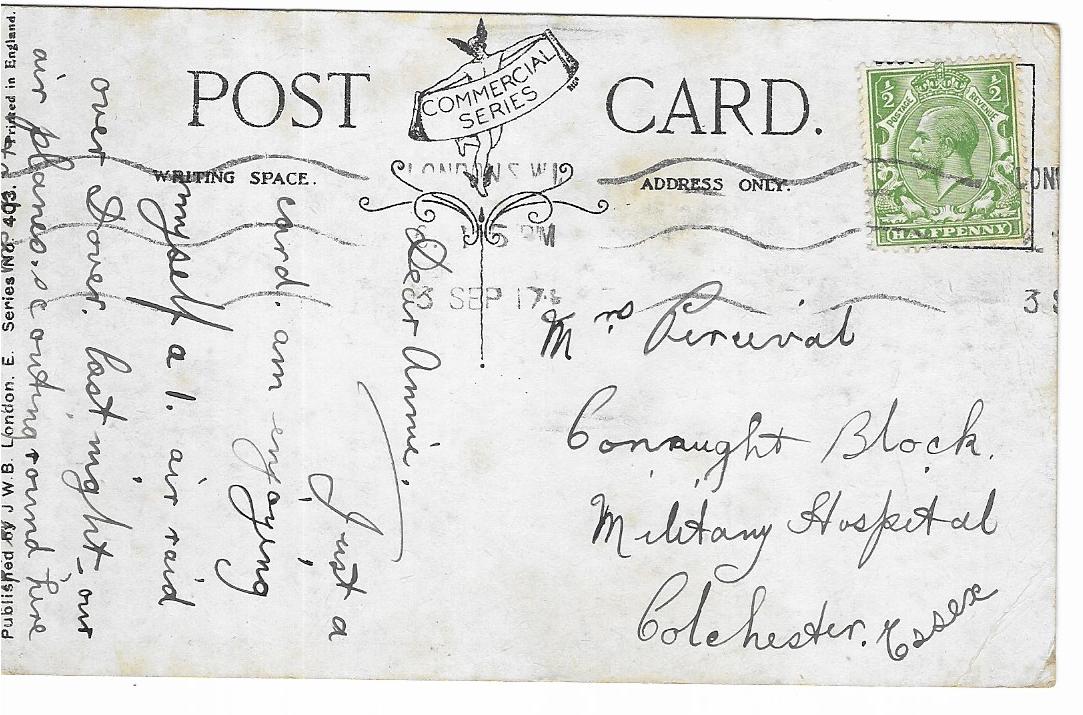 POST CARD.
COMMERCIAL
SERIES
WRITING SPACE.
ADDRESS ONLY.
½ ½
POSTAGE REVENUE
HALFPENNY
LONDON S.W.1
5 PM
3 SEP 17
LON
3 S
Dear Annie,
Just a
card. am enjoying
myself a 1. air raid
over Dover. last night_our
air planes. scouting round here
Mrs Percival
Connaught Block.
Military Hospital
Colchester. Essex
Published by J.W.B. London. E. Series No. 493. Printed in England.